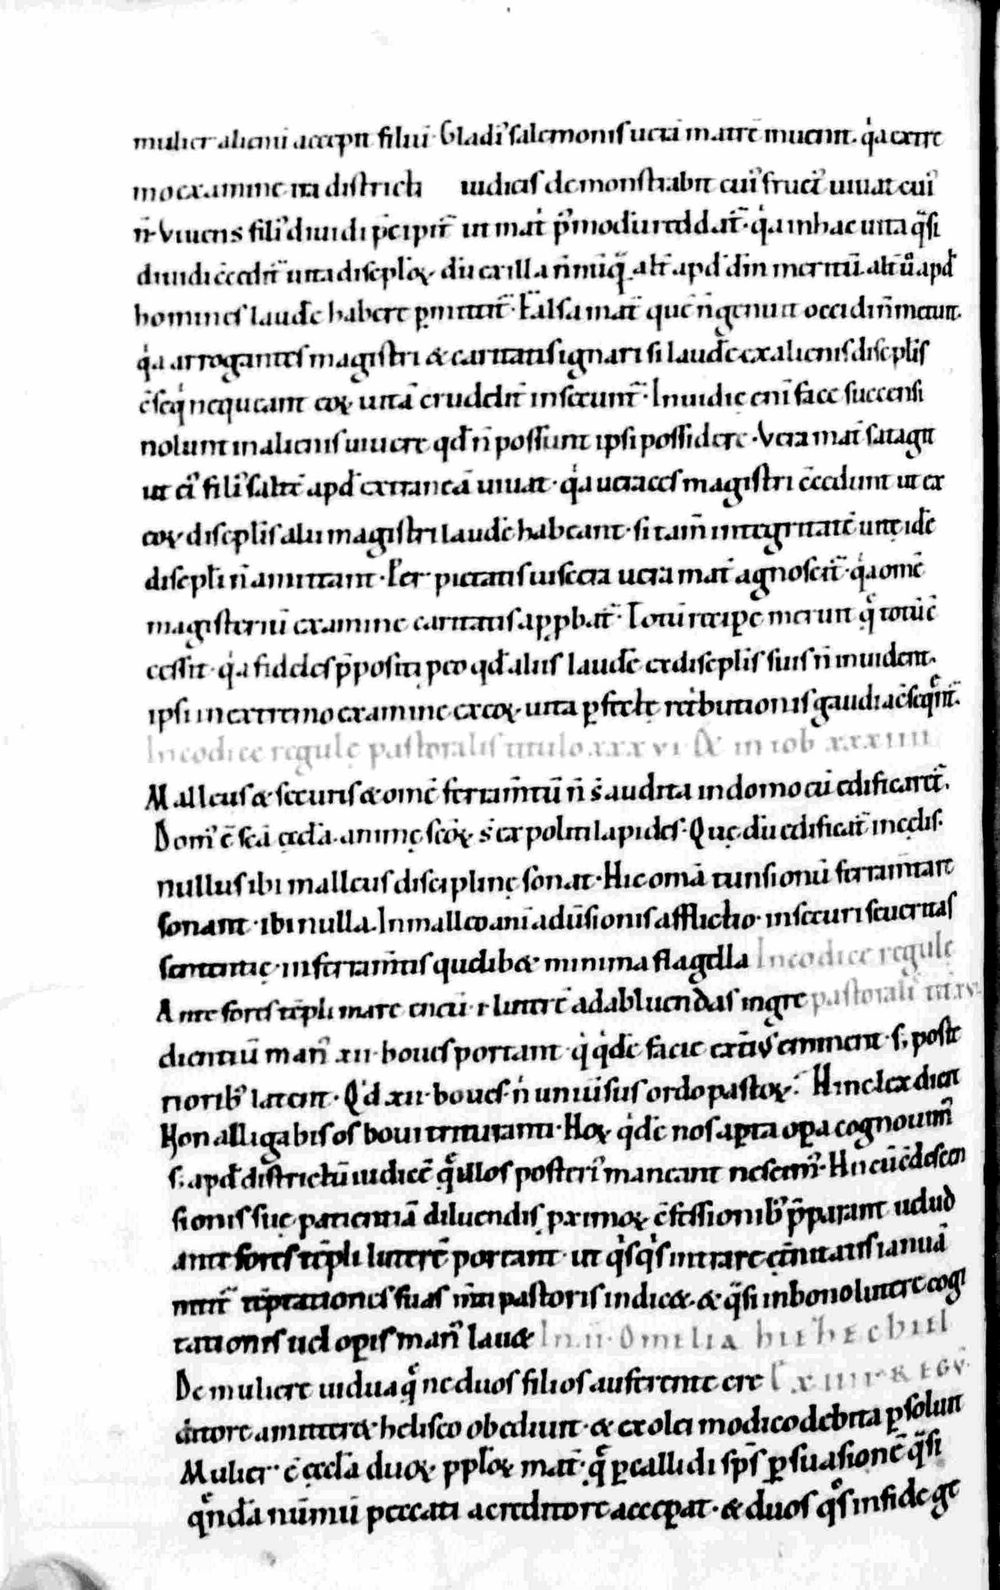 mulier alieni accepit filiū. Gladi᷒ salemonis uerā matrē inuenit. q̇a extre
mo examine ira districti iudicis demonstrabit cui᷒ fruct᷒ uiuat cui᷒
n̄. Viuens fili᷒ diuidi p̄cipit᷒ ut mat̄ p̄modū reddat᷒. q̇a in hac uita q̄si
diuidi c̄cedit᷒ uita discipl̄oꝝ dū ex illa n̄niq̄ alt̄ apd̄ dm̄ meritū. alt̄ u̇o apd̄
homines laudē habere ꝑmittit᷒. Falsa mat̄ quę n̄ genuit occidi n̄ metuit.
q̇a arrogantes magistri & caritatis ignari si laudē ex alienis discipl̄is
c̄seq̇ nequeant eoꝝ uitā crudelit̄ insecunt᷒. Inuidie eni᷒ face succensi
nolunt in alienis uiuere qd̄ n̄ possunt ipsi possidere. Vera mat̄ satagit
ut ei᷒ fili᷒ saltē apd̄ extraneā uiuat. q̇a ueraces magistri c̄cedunt ut ex
eoꝝ discipl̄is alii magistri laudē habeant. si tam̄ integritatē uitę idē
discipl̄i n̄ amittant. Per pietatis uiscera uera mat̄ agnoscit᷒. q̇a omē
magisteriū examine caritatis app̱bat᷒. Totū recipe meruit q̄ totū ē
cessit. q̇a fideles p̄positi p̱ eo qd̄ aliis laudē ex discipl̄is suis n̄ inuident.
ipsi in extremo examine ex eoꝝ uita ꝑfectę retributionis gaudia c̄seq̄nt᷒.
In codice regulę pastoralis titulo xxxvi & in iob xxxiiii
Malleus & securis & omē ferram̄tū n̄ s̄ audita in domo cū edificaret᷒.
Dom᷒ ē scā ęccl̄a. animę scōꝝ s̄ expoliti lapides. Quę dū edificat᷒ in cęlis.
nullus ibi malleus disciplinę sonat. Hic omā tunsionū ferram̄ta re
sonant. ibi nulla. In malleo ani᷒aduersionis afflictio. in securi seueritas
sententię. in ferram̄tis qudlib& minima flagella In codice regulę
Ante fores tēpli mare eneū. i. luterē ad abluendas ingre pastoralis tit. xv.
dientiū man᷒ xii. boues portant. q̇ q̇dē facie exteri᷒ eminent. s; poste
riorib᷒ latent. Qd̄ xii. boues. n̄ uniuersus ordo pastoꝝ? Hinc lex dicit
Non alligabis os boui trituranti. Hoꝝ q̇dē nos aꝑta oꝑa cognouim᷒
s; apd̄ districtū iudicē q̄ illos posteri᷒ maneant nescim᷒. Hi cū c̄descen
sionis suę patientiā diluendis p̱ximoꝝ c̄fessionib᷒ p̄parant uelud
ante fores tēpli luterē portant. ut q̇sq̇s intrare ęternitatis ianuā
nitit᷒ tēptationes suas m̄ti pastoris indic&. & q̄si in boum lutere cogi
tationis uel oꝑis man᷒ lau& In .ii. Omelia hiezechiel
De muliere uidua q̄ ne duos filios auferente cre Lxiiii. & regū.
ditore amitter& heliseo obediuit. & ex olei modico debita ꝑsoluit
Mulier ē ęccl̄a duoꝝ pp̱loꝝ mat̄. q̄ ꝑ callidi sp̄s ꝑsuasionē q̄si
q̄ndā nūmū peccati a creditore acceꝑat. & duos q̄s in fide ge